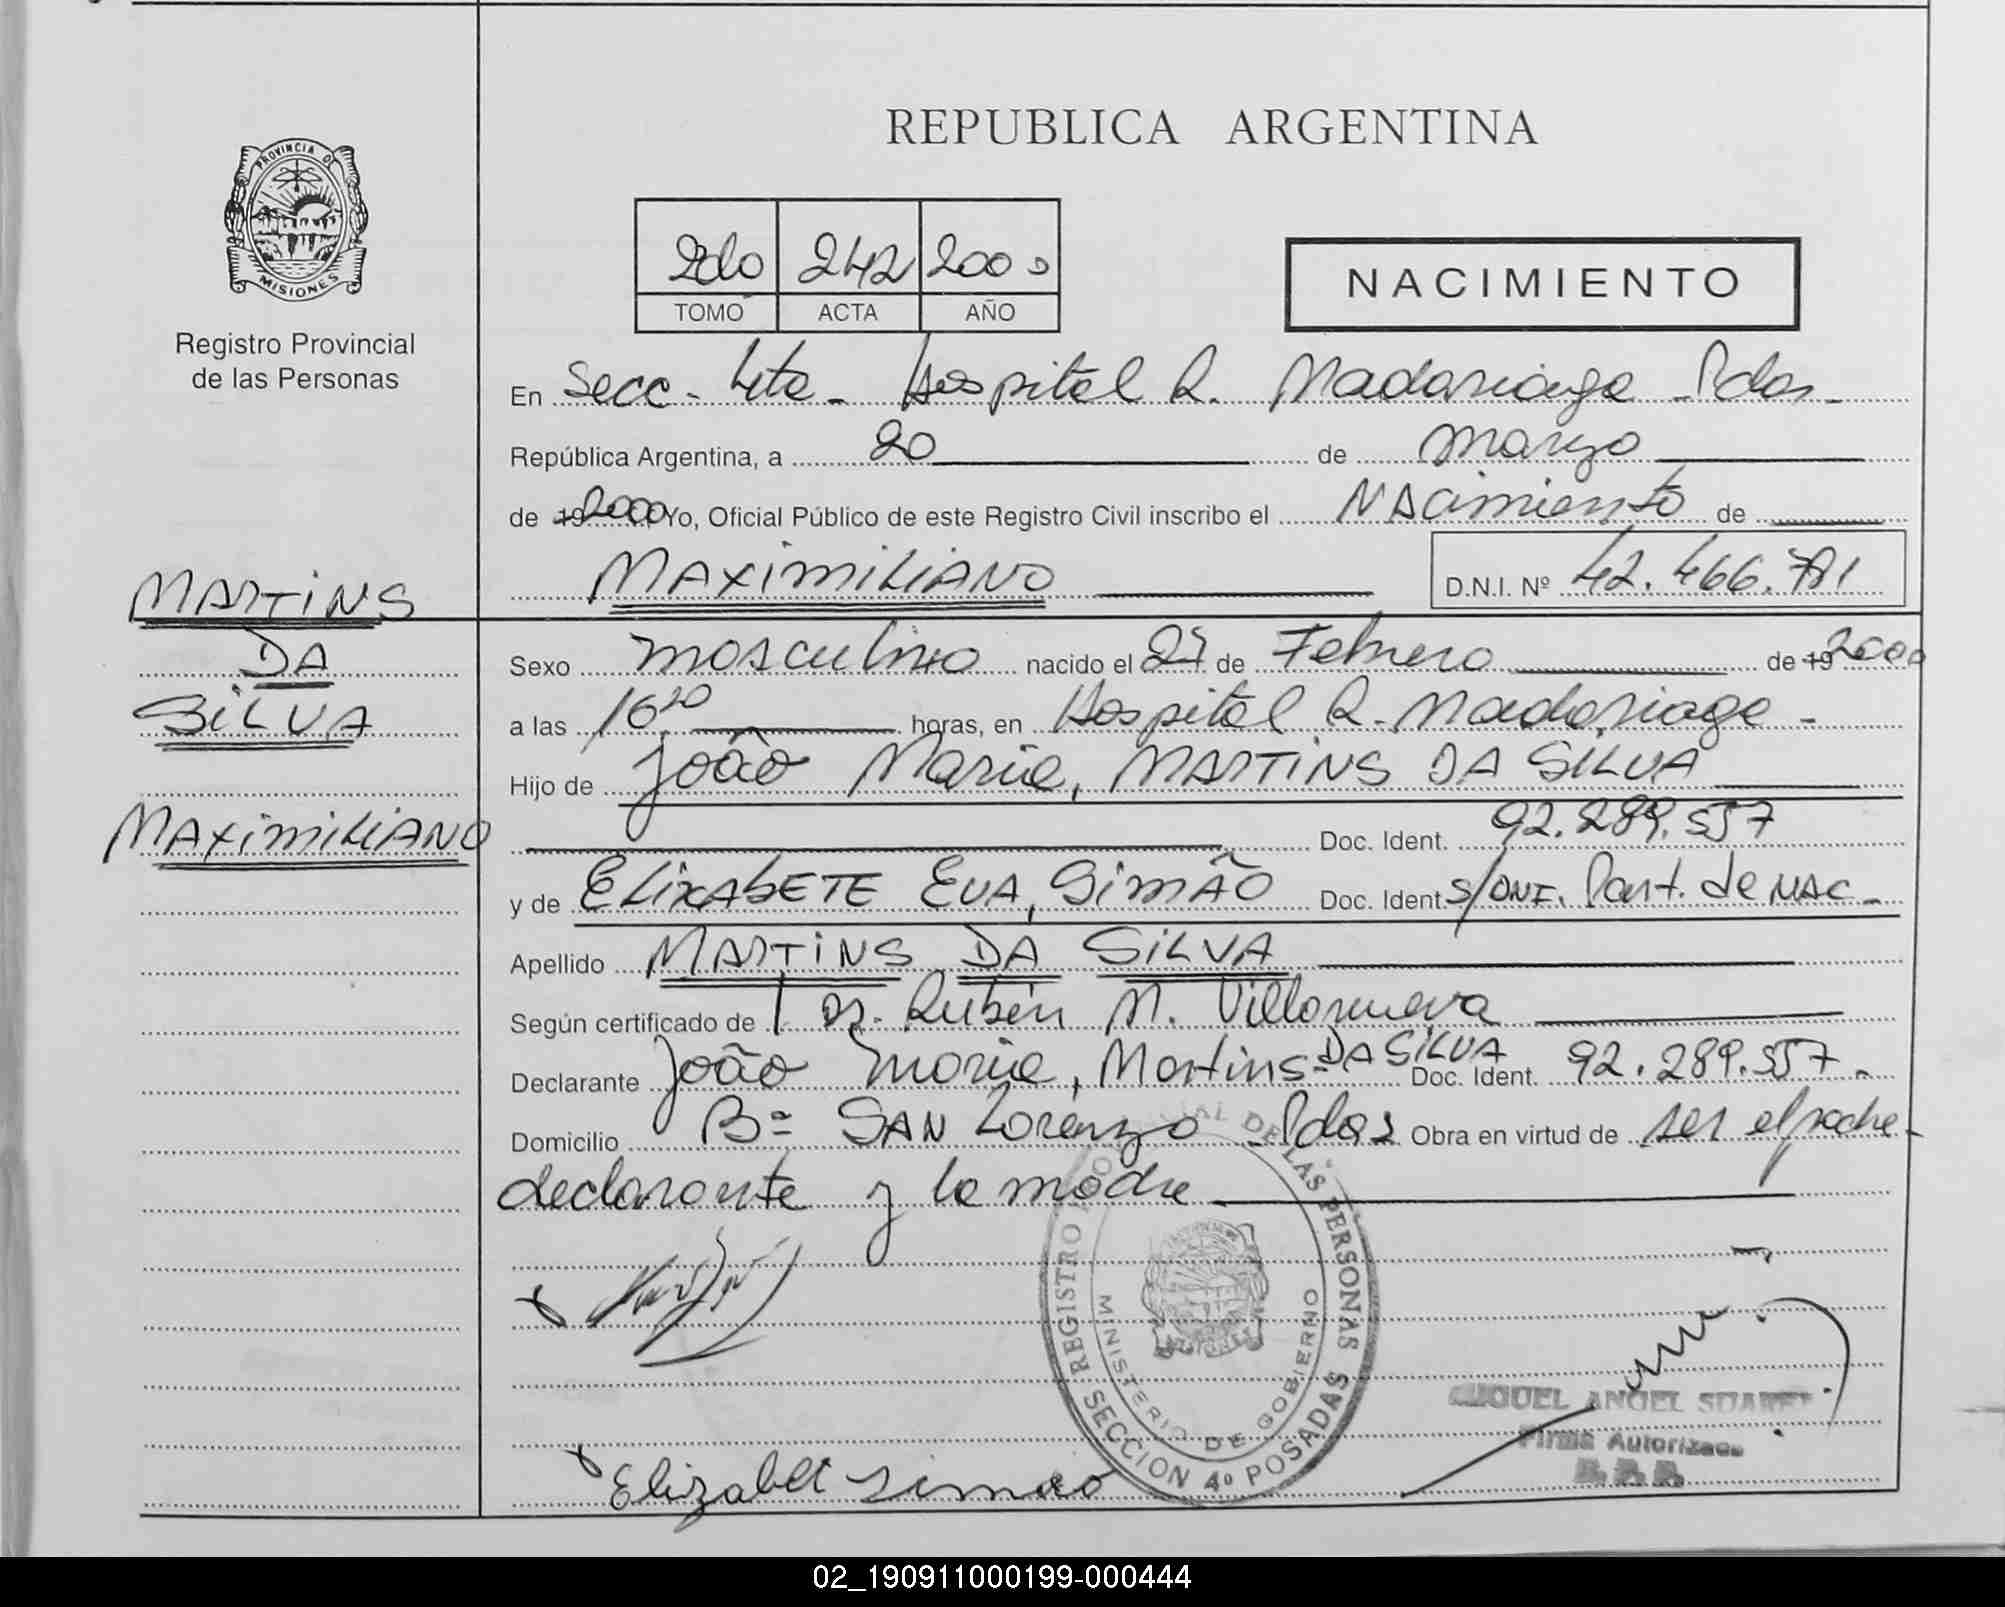 REPUBLICA ARGENTINA
PROVINCIA DE
MISIONES
Registro Provincial
de las Personas
2do 242 2000
TOMO ACTA AÑO
NACIMIENTO
En Secc. 4ta - Hospital R. Madariaga - Pdas -
República Argentina, a 20 de marzo
de 19 2000 Yo, Oficial Público de este Registro Civil inscribo el NAcimiento de
MAXIMILIANO D.N.I. Nº 42.466.781
MARTINS
DA
SILVA
MAXIMILIANO
Sexo masculino nacido el de Febrero de 19 2000
a las horas, en Hospital R. Madariaga -
Hijo de João Maria, MARTINS DA SILVA
Doc. Ident. 92.289.557
y de ELIZABETE EVA, SIMÃO Doc. Ident. S/DNI. Part. de NAC -
Apellido MARTINS DA SILVA
Según certificado de Dr. Rubén M. Villanueva
Declarante João Maria, Martins DA SILVA Doc. Ident. 92.289.557 -
Domicilio Bº SAN Lorenzo - Pdas Obra en virtud de ser el padre
declarante y la madre
REGISTRO PROVINCIAL DE LAS PERSONAS
MINISTERIO DE GOBIERNO
SECCION 4º POSADAS
MIGUEL ANGEL SUAREZ
Firma Autorizada
Elizabet Simão
02_190911000199-000444